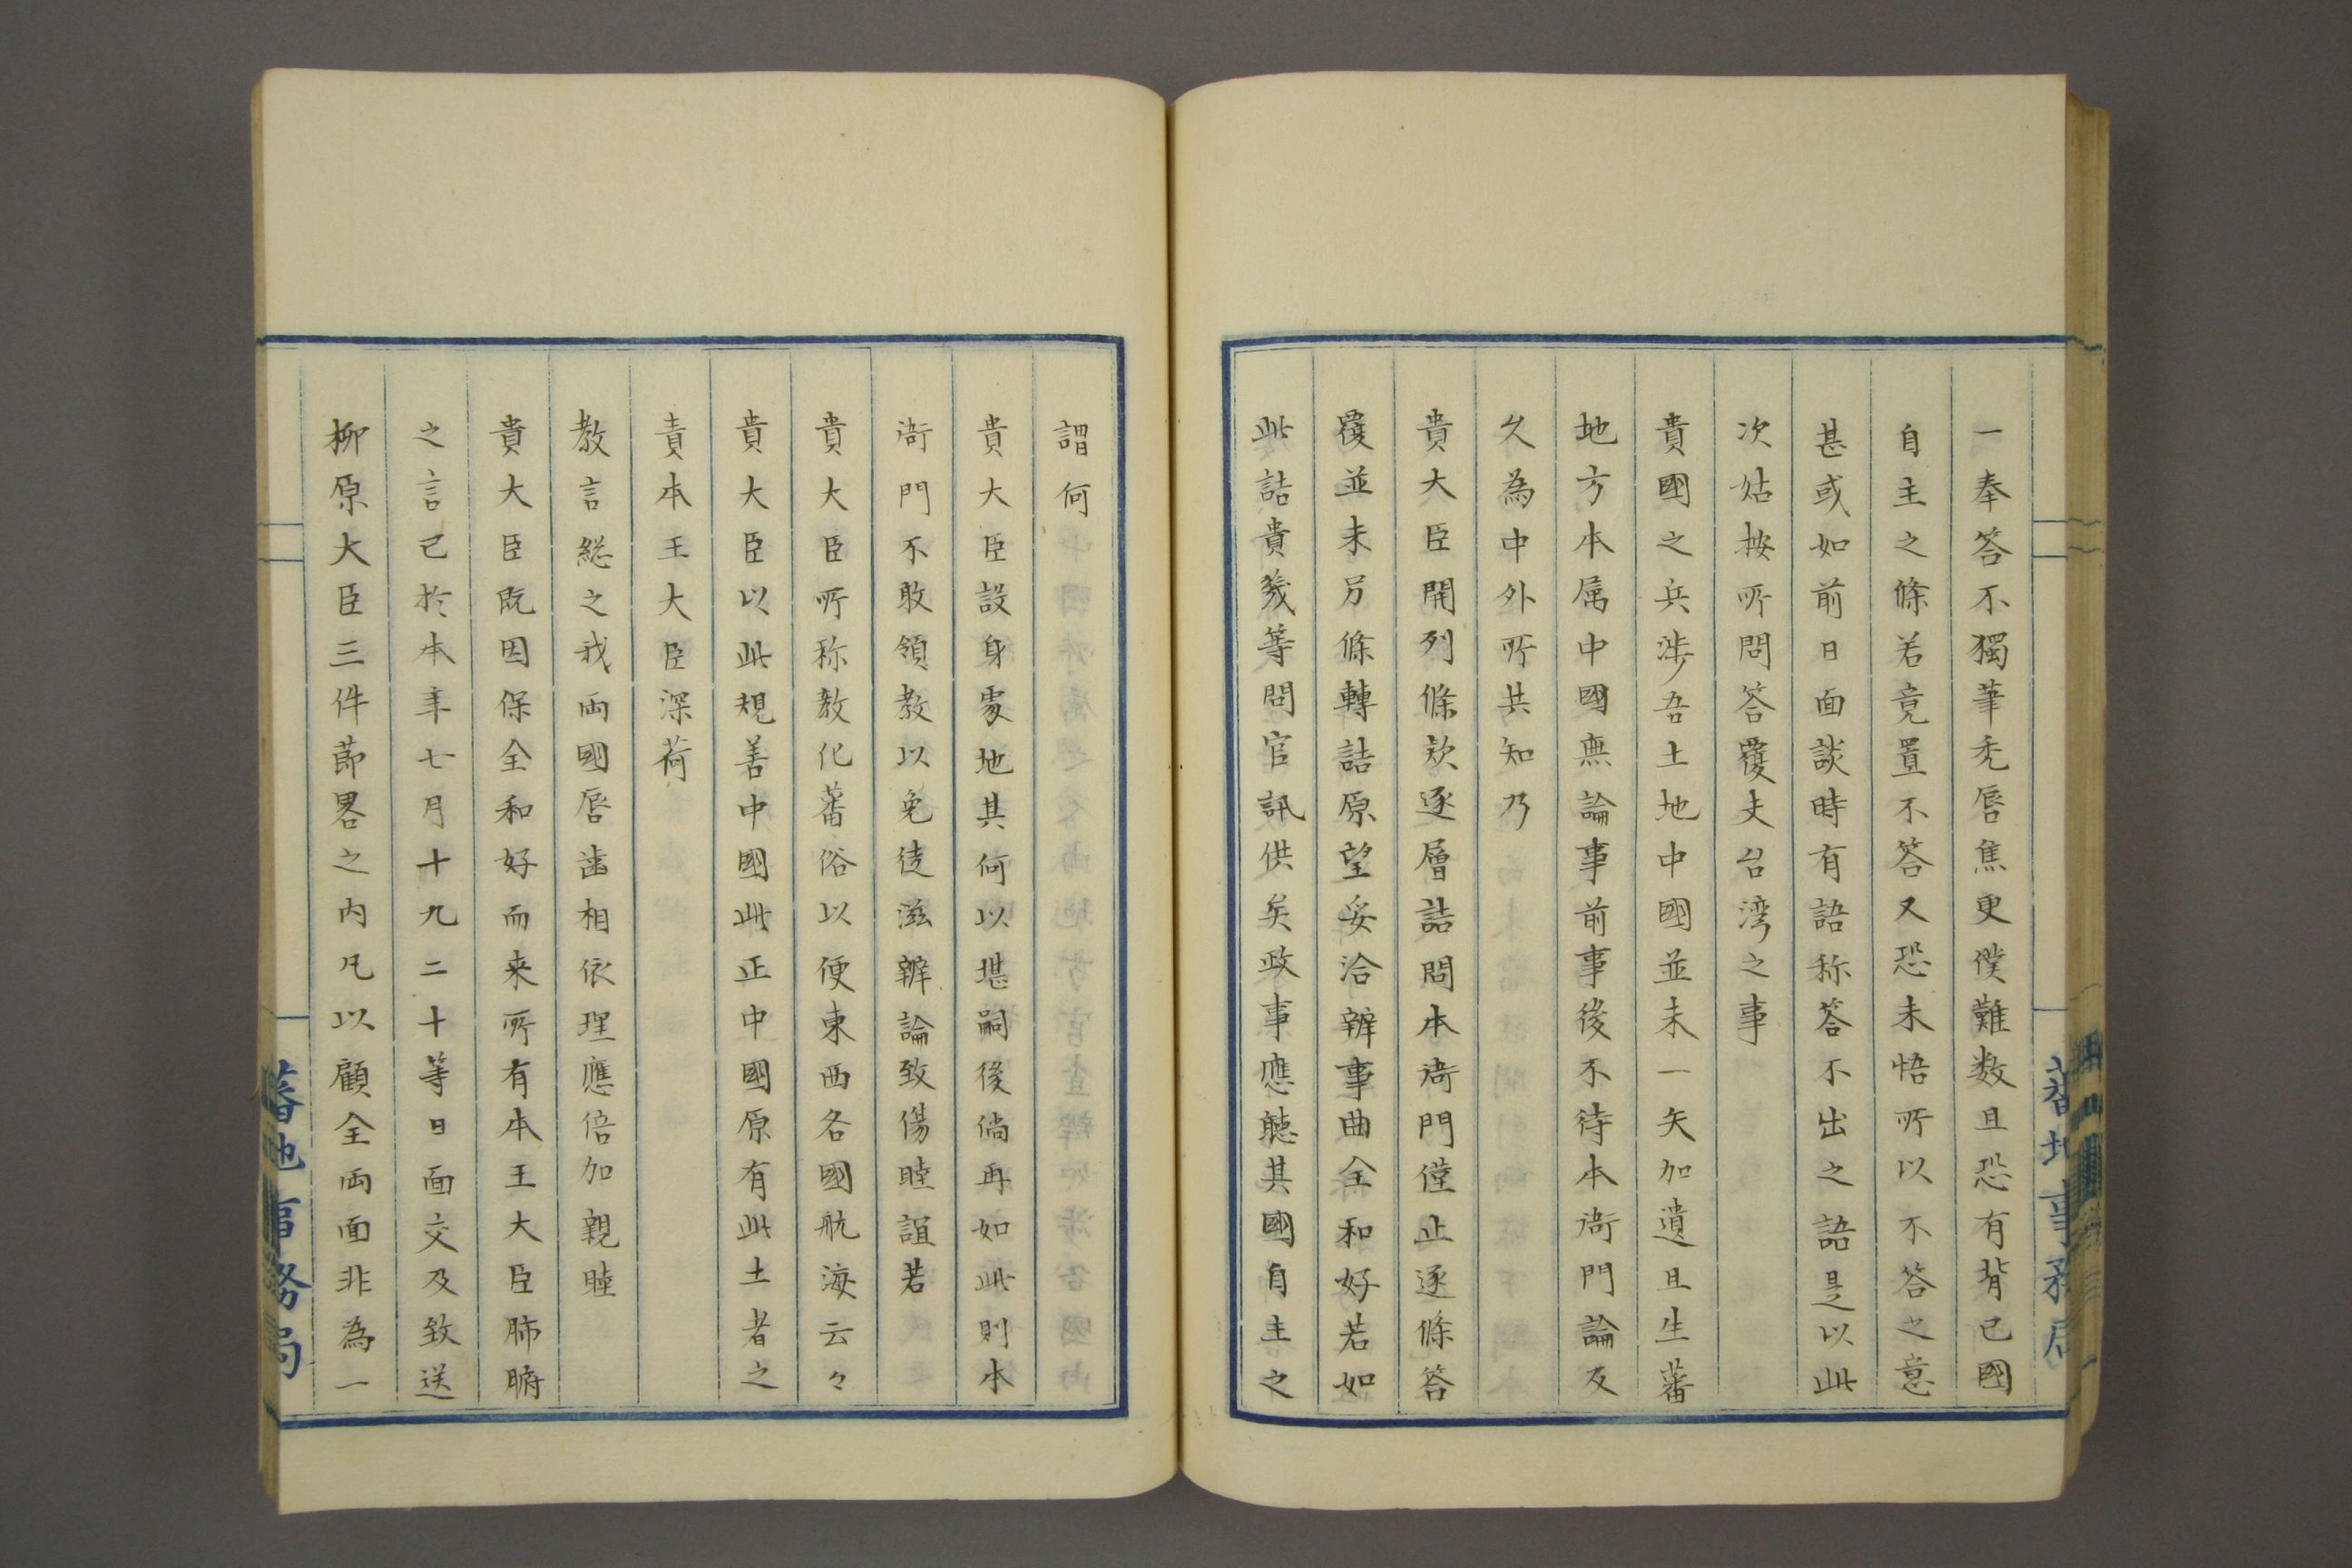 一奉答不獨筆禿唇焦更僕難数且恐有背已國
自主之條若竟置不答又恐未悟所以不答之意
甚或如前日面談時有語称答不出之語是以此
次姑按所問答覆夫台湾之事
貴國之兵涉吾土地中國並未一矢加遺且生蕃
地方本属中國無論事前事後不待本衙門論及
久為中外所共知乃
貴大臣開列條欵逐層詰問本衙門僅止逐條答
覆並未另條轉詰原望妥洽辦事曲全和好若如
此詰責幾等問官訊供矣政事應聴其國自主之
謂何
貴大臣設身處地其何以堪嗣後倘再如此則本
衙門不敢領教以免徒滋辦論致傷睦誼若
貴大臣所称教化蕃俗以便東西各國航海云々
貴大臣以此規善中國此正中國原有此土者之
責本王大臣深荷
教言総之我両國唇歯相依理應倍加親睦
貴大臣既因保全和好而来所有本王大臣肺腑
之言已於本年七月十九二十等日面交及致送
柳原大臣三件節畧之内凡以顧全両面非為一
蕃地事務局
蕃地事務局